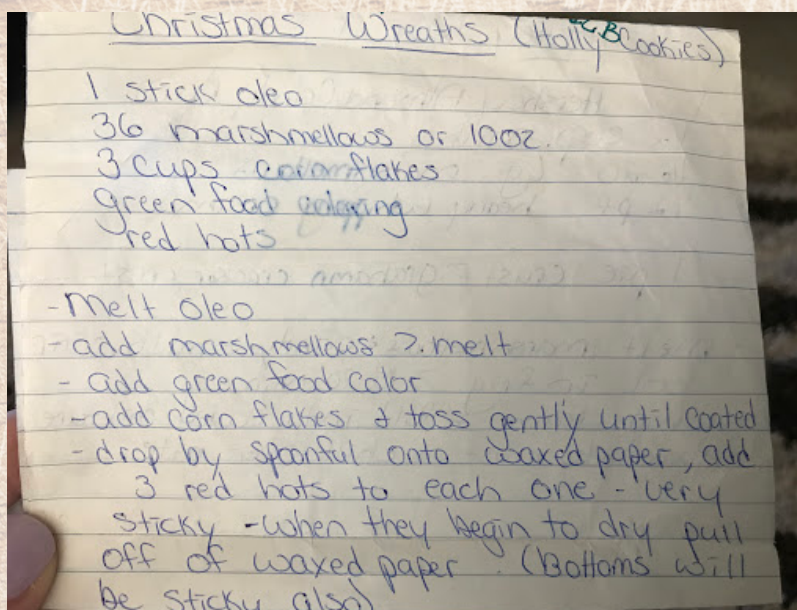 Christmas Wreaths (Holly CB Cookies)
1 stick oleo
36 marshmellows or 10oz.
3 cups cornflakes
green food coloring
red hots
-melt oleo
-add marshmellows & melt
- add green food color
-add corn flakes & toss gently until coated
-drop by spoonful onto waxed paper, add
3 red hots to each one - very
sticky -when they begin to dry pull
off of waxed paper. (Bottoms will
be sticky also)